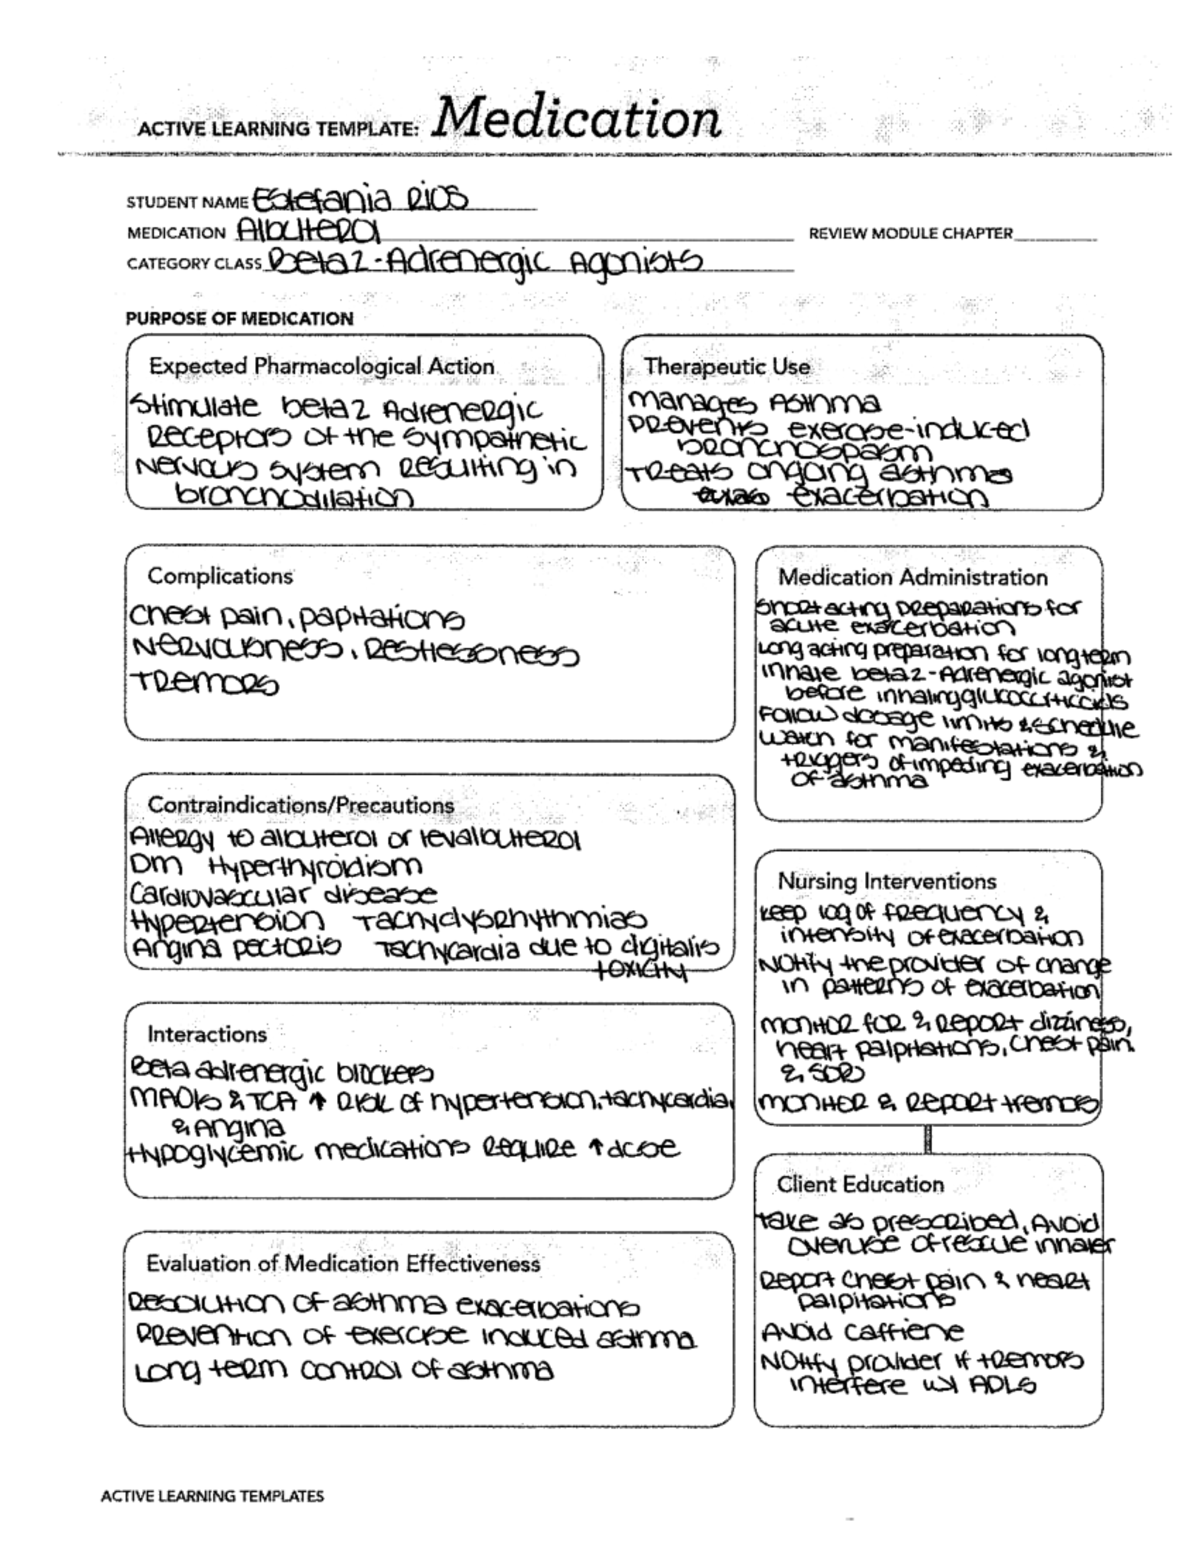 ACTIVE LEARNING TEMPLATE: Medication
STUDENT NAME Estefania Rios
MEDICATION Albuterol REVIEW MODULE CHAPTER
CATEGORY CLASS Beta 2-Adrenergic Agonists
PURPOSE OF MEDICATION
Expected Pharmacological Action
Stimulate beta 2 Adrenergic
Receptors of the sympathetic
Nervous system resulting in
bronchodilation
Therapeutic Use
manages Asthma
Prevents exercise-induced
bronchospasm
Treats ongoing asthma
exacerbation
Complications
Chest pain, papitations
Nervousness, Restlessness
Tremors
Medication Administration
Short acting preparations for
acute exacerbation
Long acting preparation for longterm
inhale beta2-Adrenergic agonist
before inhaling glucocorticoids
Follow dosage limits & schedule
Watch for manifestations &
triggers of impeding exacerbation
of asthma
Contraindications/Precautions
Allergy to albuterol or levalbuterol
DM Hyperthyroidism
Cardiovascular disease
Hypertension Tachydysrhythmias
Angina pectoris Tachycardia due to digitalis
toxicity
Nursing Interventions
keep log of frequency &
intensity of exacerbation
Notify the provider of change
in patterns of exacerbation
monitor for & report dizziness,
heart palpitations, chest pain.
& SOB
monitor & report tremors
Interactions
Beta adrenergic blockers
MAOIs & TCA ↑ risk of hypertension, tachycardia,
& Angina
Hypoglycemic medications require ↑ dose
Client Education
take as prescribed, Avoid
overuse of rescue inhaler
Report chest pain & heart
palpitations
Avoid caffiene
Notify provider if tremors
interfere w/ ADLS
Evaluation of Medication Effectiveness
Resolution of asthma exacerbations
Prevention of exercise induced asthma
Long term control of asthma
ACTIVE LEARNING TEMPLATES